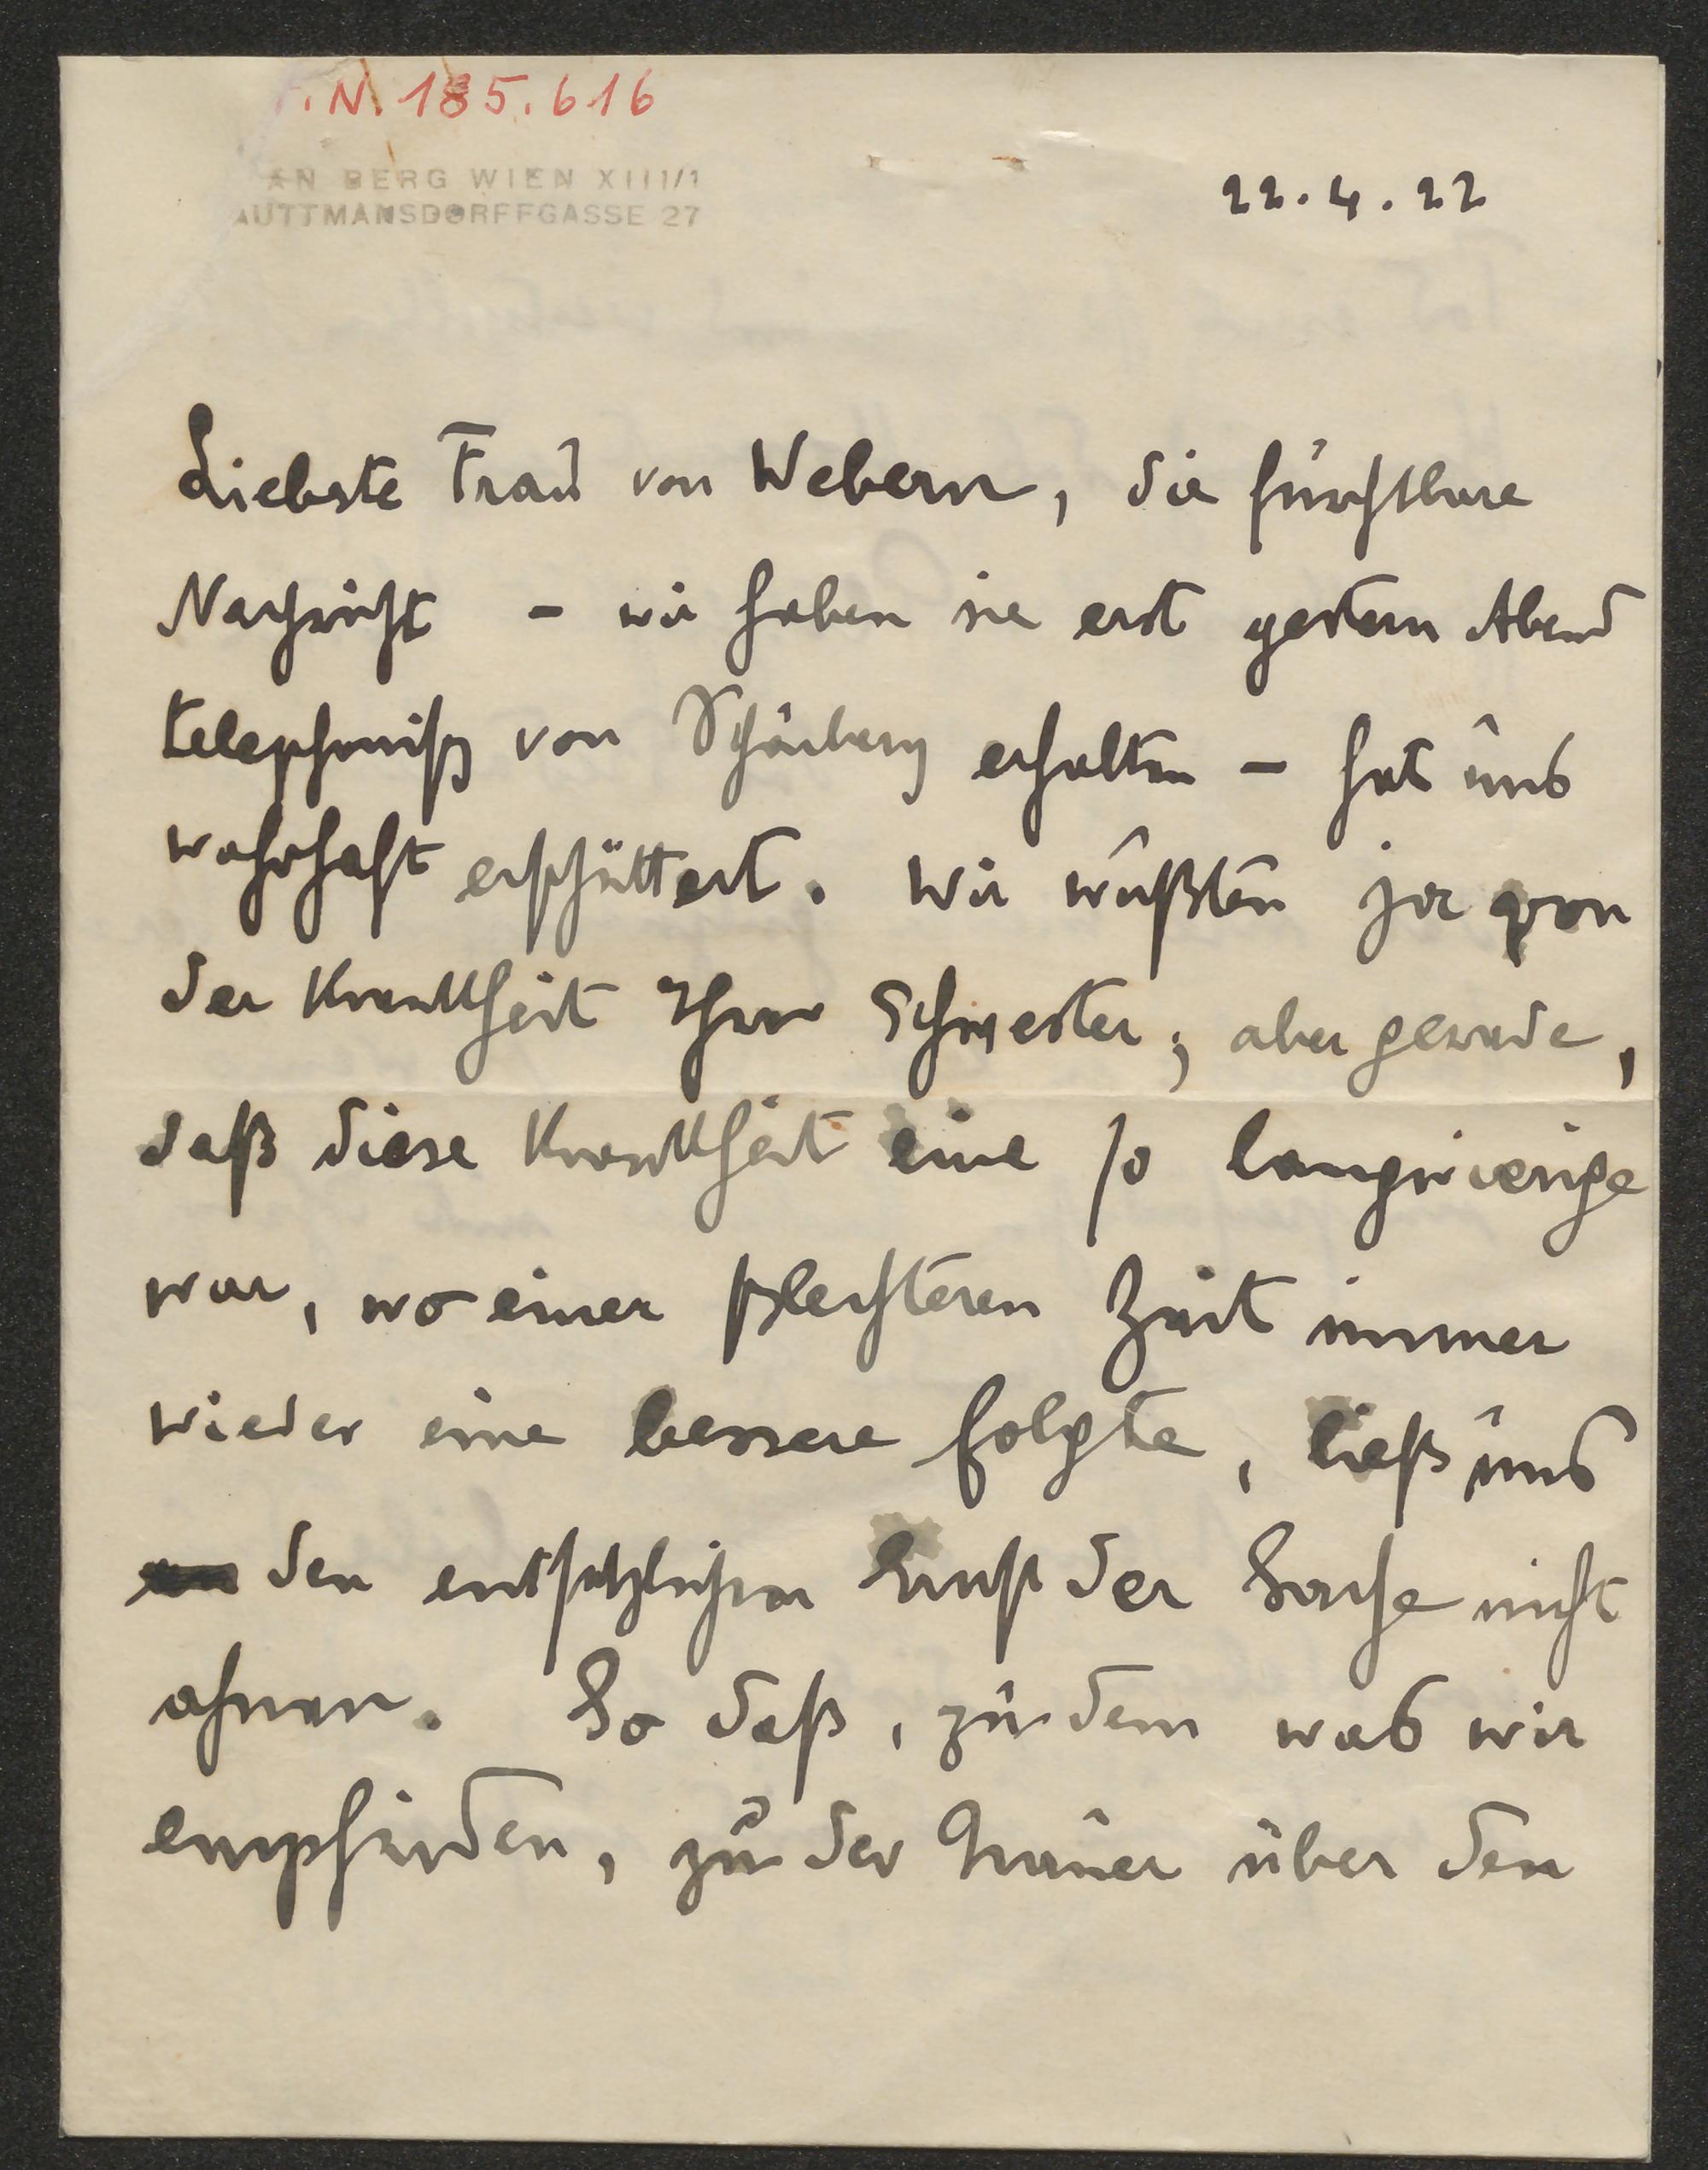 .N. 185.616
AN BERG WIEN XIII/1
AUTTMANSDORFFGASSE 27
22.4.22
Liebste Frau von Webern, die furchtbare
Nachricht – wir haben sie erst gestern Abend
telephonisch von Schönberg erhalten – hat uns
wahrhaft erschüttert. Wir wußten ja von
der Krankheit Ihrer Schwester; aber gerade,
daß diese Krankheit eine so langwierige
war, wo einer schlechteren Zeit immer
wieder eine bessere folgte, ließ uns
den entsetzlichen Ernst der Sache nicht
ahnen. So daß, zu dem was wir
empfinden, zu der Trauer über den